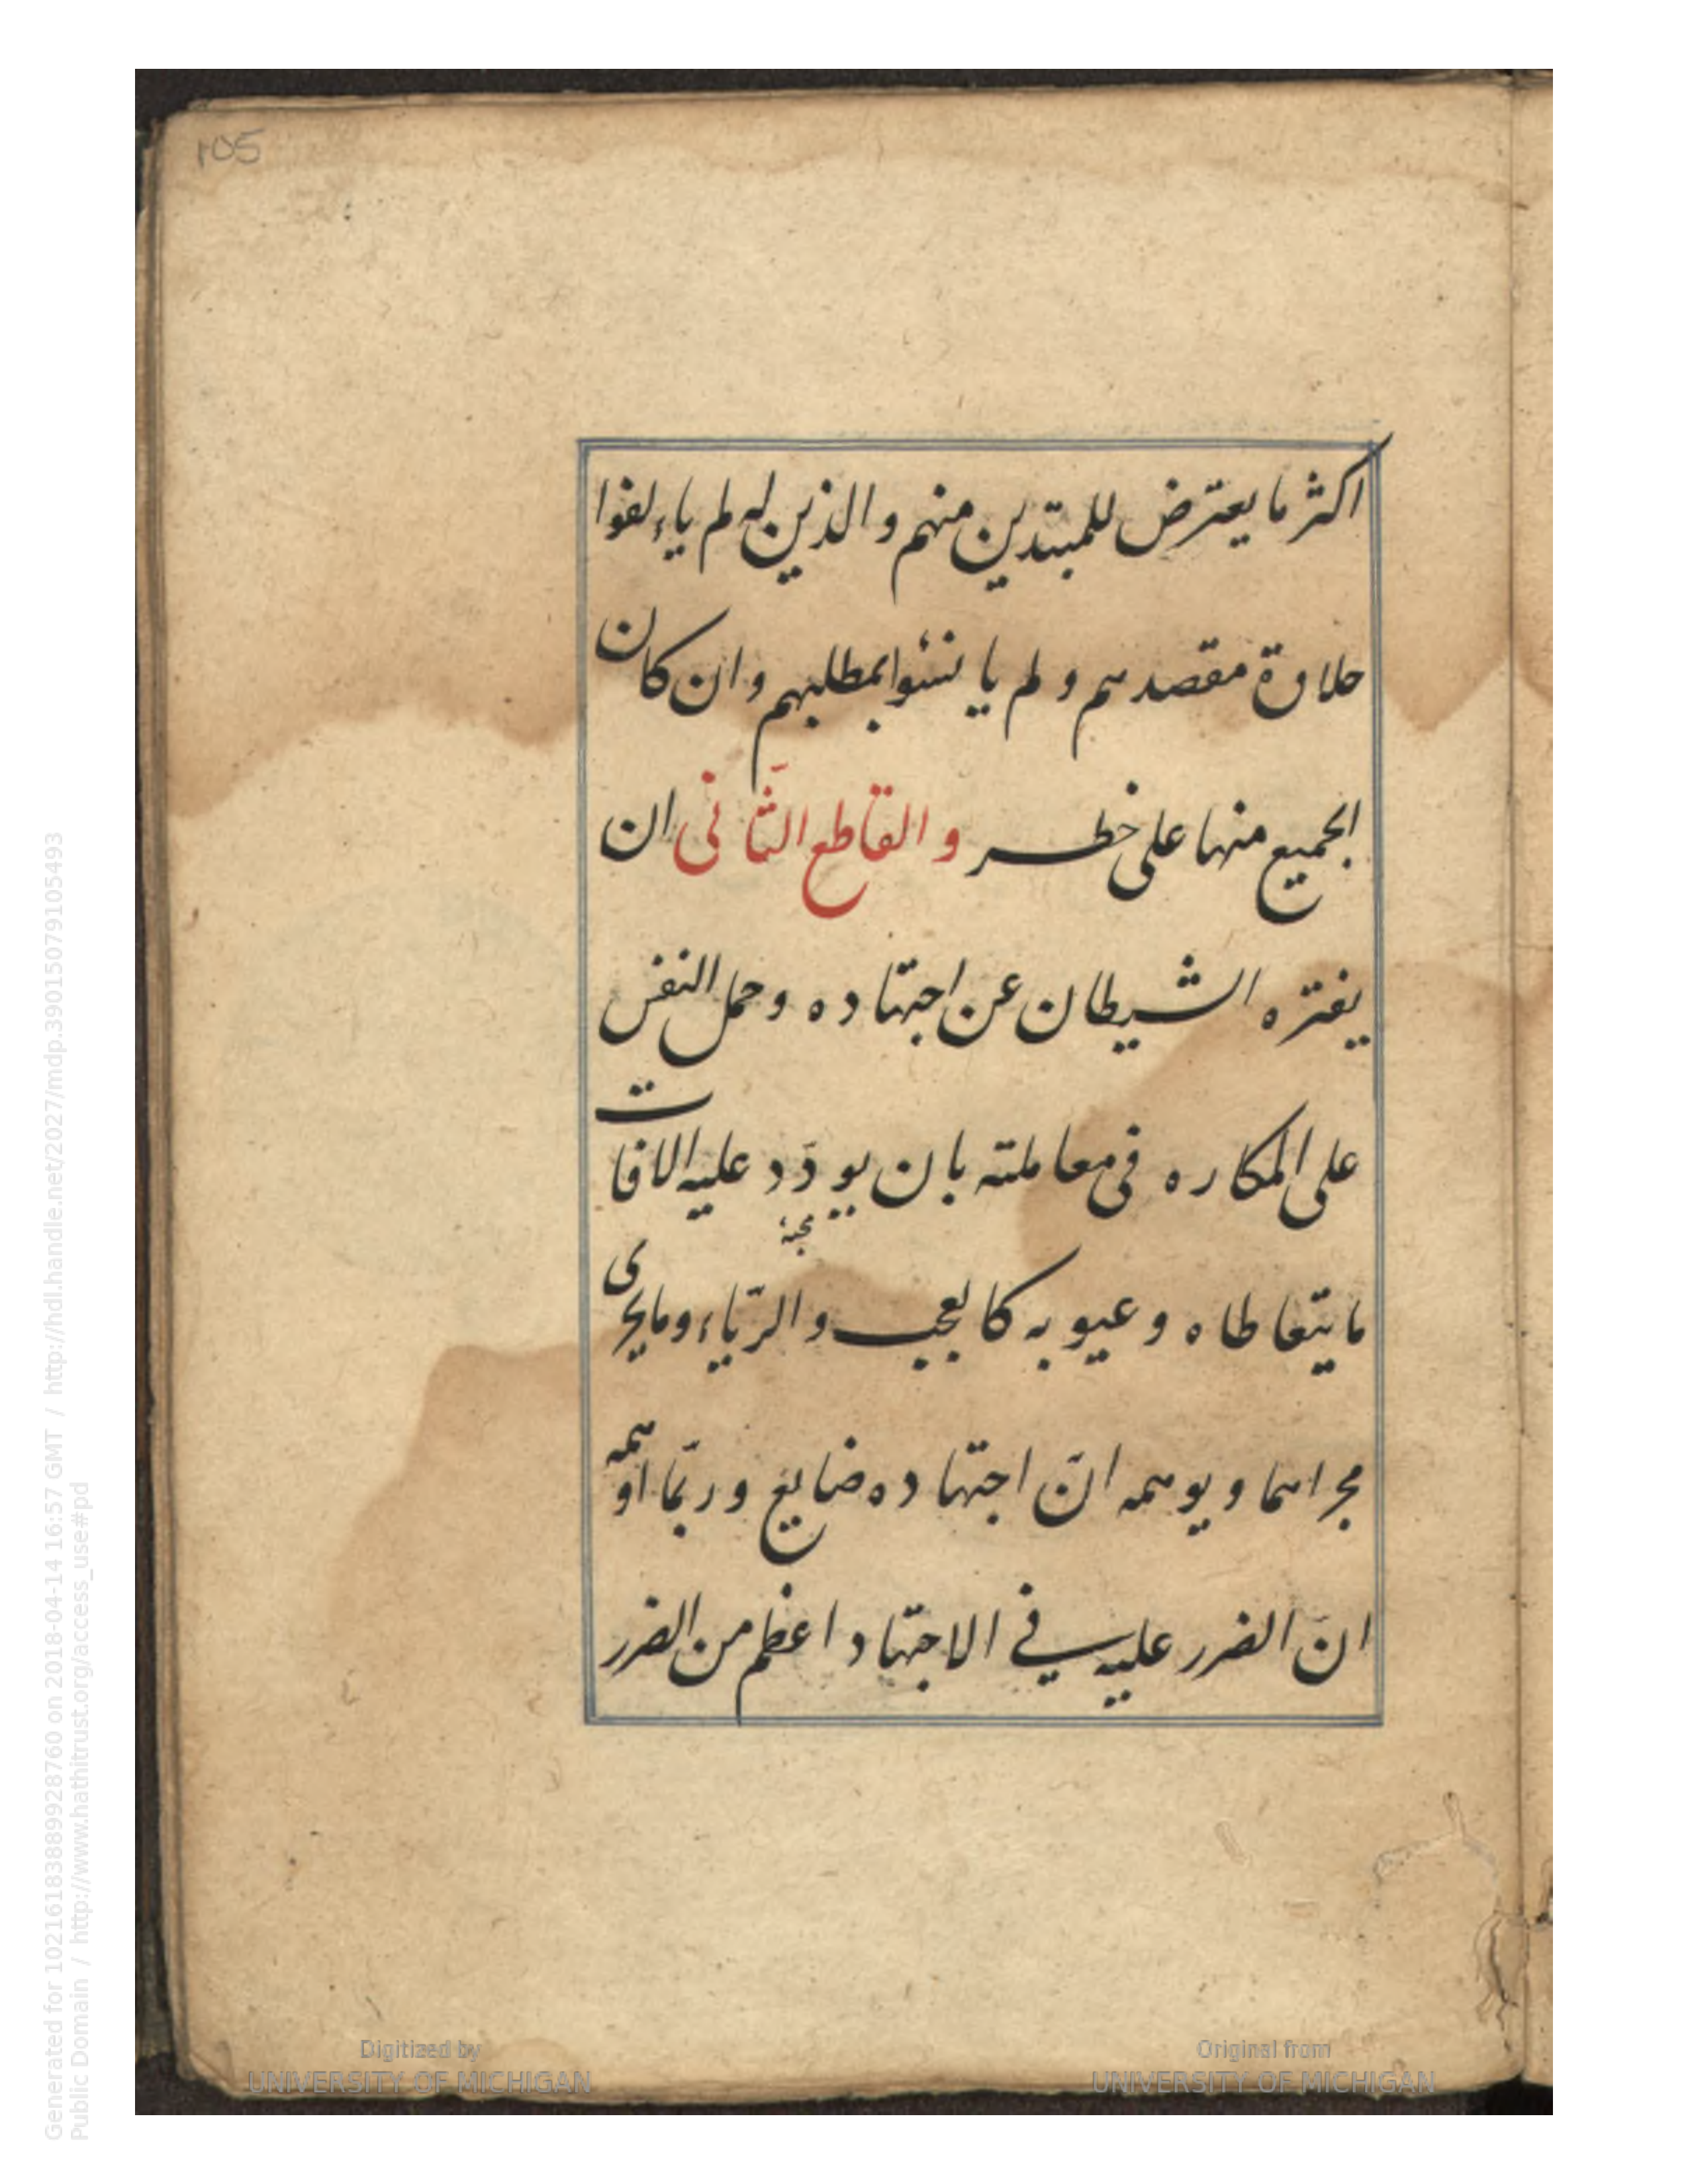 105
اكثر ما يعترض للمبتدين منهم والذين لم ياءلفوا
حلاوة مقصدهم ولم يانسئوا بمطلبهم وان كان
الجميع منها على خطر والقاطع الثّانى ان
يفتره الشيطان عن اجتهاده وحمل النفس
على المكاره فى معاملته بان يودّد عليه الافات
ما يتعاطاه وعيوبه كالعجب والرّياء وما يجرى
مجراهما ويوهمه انّ اجتهاده ضايع وربّما اوهمه
انّ الضرر عليه في الاجتهاد اعظم من الضرر
Digitized by
UNIVERSITY OF MICHIGAN
Original from
UNIVERSITY OF MICHIGAN
Generated for 1021618388998928760 on 2018-04-14 16:57 GMT / http://hdl.handle.net/2027/mdp.39015079105493
Public Domain / http://www.hathitrust.org/access_use#pd